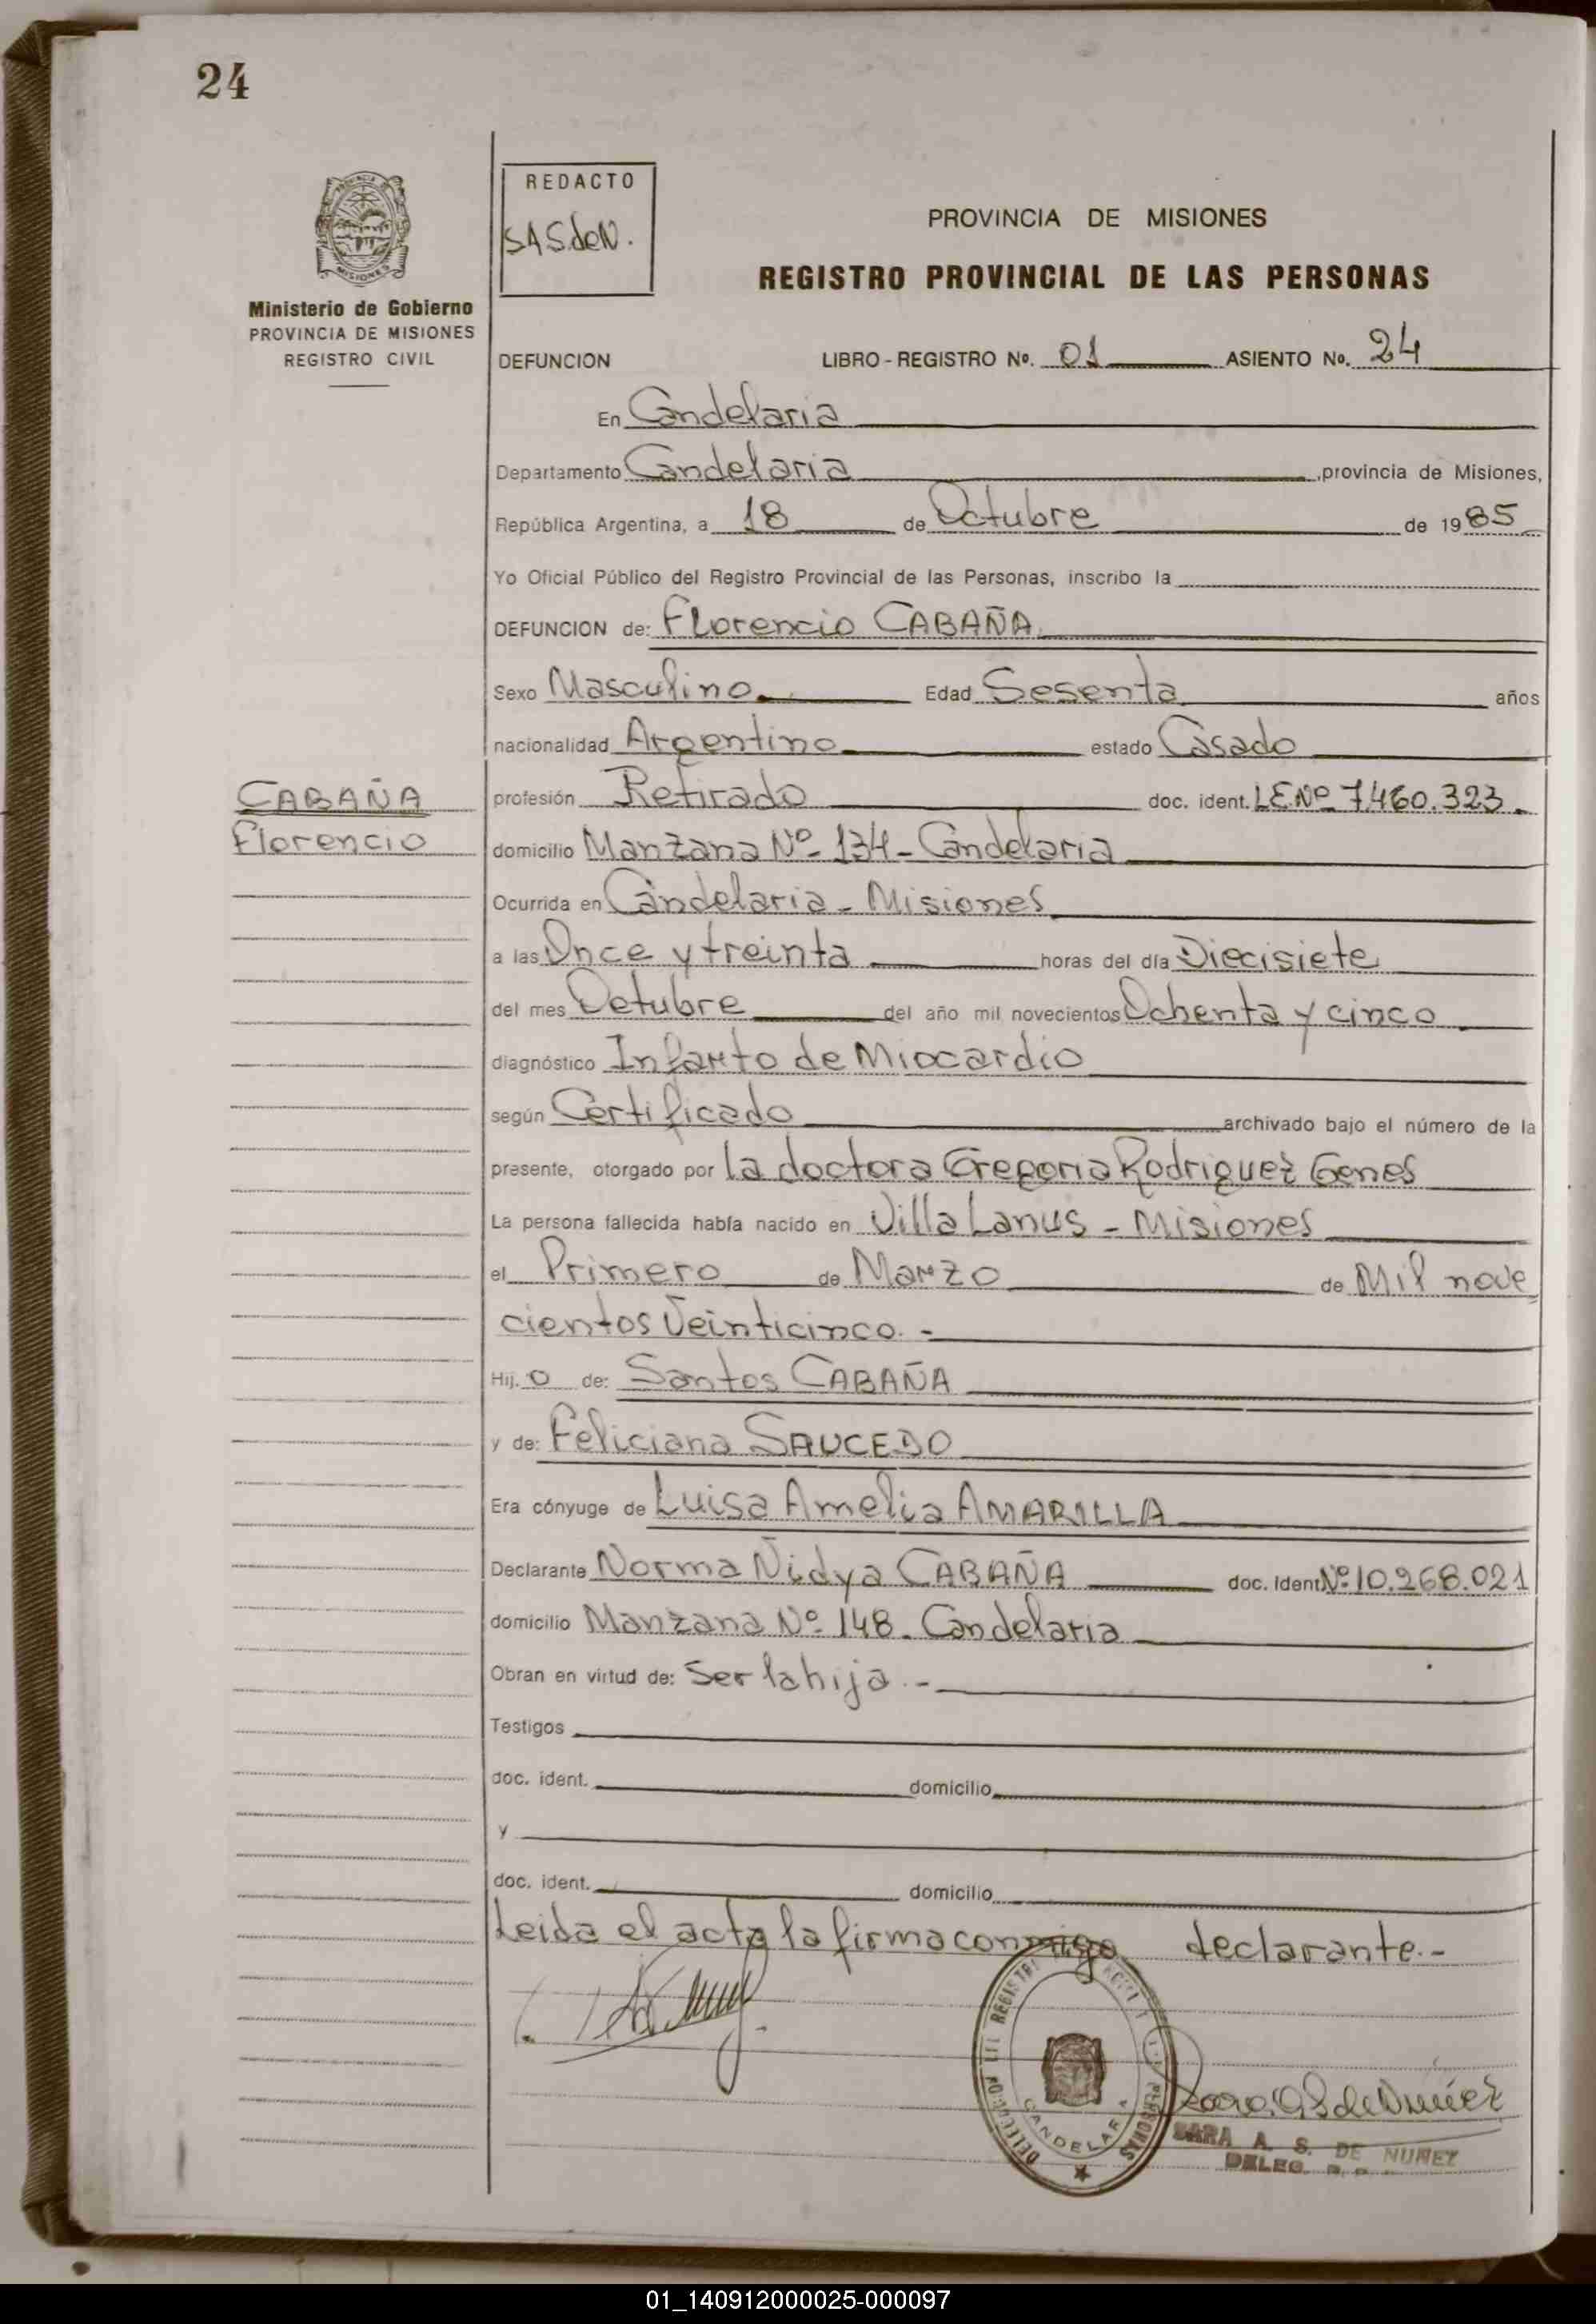 24
REDACTO
SAS.deN.
PROVINCIA DE MISIONES
REGISTRO PROVINCIAL DE LAS PERSONAS
MISIONES
Ministerio de Gobierno
PROVINCIA DE MISIONES
REGISTRO CIVIL
DEFUNCION LIBRO - REGISTRO Nº. 01 ASIENTO No. 24
En Candelaria
Departamento Candelaria, provincia de Misiones,
República Argentina, a 18 de Octubre de 1985
Yo Oficial Público del Registro Provincial de las Personas, inscribo la
DEFUNCION de: Florencio CABAÑA
Sexo Masculino Edad Sesenta años
nacionalidad Argentino estado Casado
CABAÑA
Florencio
profesión Retirado doc. ident. LE Nº 7.460.323.
domicilio Manzana Nº 134 - Candelaria
Ocurrida en Candelaria - Misiones
a las Once y treinta horas del día Diecisiete
del mes Octubre del año mil novecientos Ochenta y cinco
diagnóstico Infarto de Miocardio
según Certificado archivado bajo el número de la
presente, otorgado por la doctora Gregoria Rodriguez Genes
La persona fallecida había nacido en Villa Lanus - Misiones
el Primero de Marzo de Mil nove
cientos Veinticinco. -
Hij. o de: Santos CABAÑA
y de: Feliciana SAUCEDO
Era cónyuge de Luisa Amelia AMARILLA
Declarante Norma Nidya CABAÑA doc. Ident. Nº 10.268.021
domicilio Manzana Nº 148. Candelaria
Obran en virtud de: Ser la hija. -
Testigos
doc. ident. domicilio
y
doc. ident. domicilio
Leida el acta la firma conmigo declarante. -
CANDELARIA
Sara A S de Nuñez
SARA A. S. DE NUÑEZ
DELEG.
01_140912000025-000097